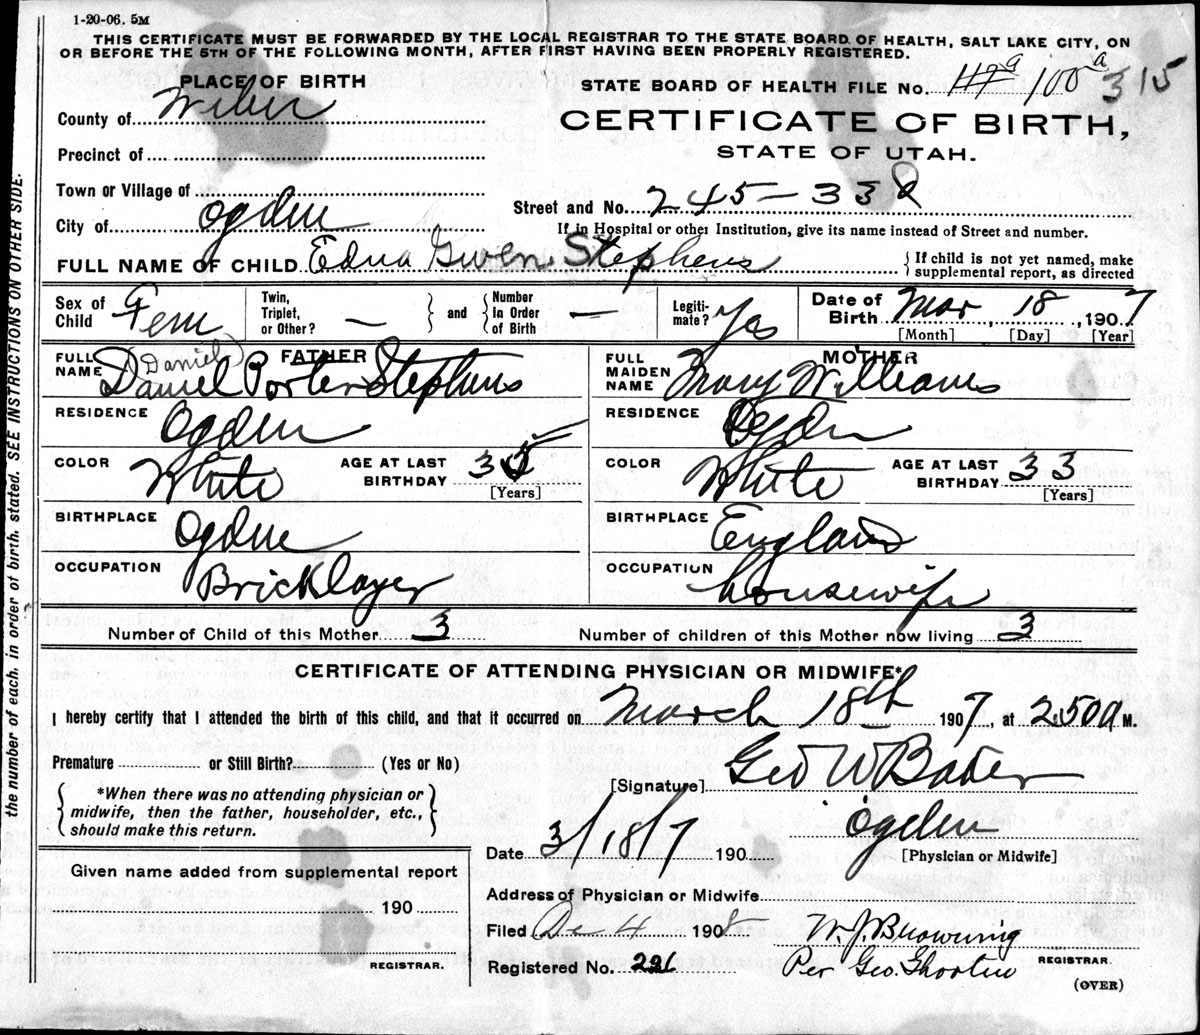 1-20-06. 5M
THIS CERTIFICATE MUST BE FORWARDED BY THE LOCAL REGISTRAR TO THE STATE BOARD OF HEALTH, SALT LAKE CITY, ON
OR BEFORE THE 5TH OF THE FOLLOWING MONTH, AFTER FIRST HAVING BEEN PROPERLY REGISTERED.
PLACE OF BIRTH
STATE BOARD OF HEALTH FILE No. 100a 315
County of Weber
CERTIFICATE OF BIRTH,
STATE OF UTAH.
Precinct of
Town or Village of
Street and No. 245-33
City of Ogden
If in Hospital or other Institution, give its name instead of Street and number.
FULL NAME OF CHILD Edna Gwen Stephens
{ If child is not yet named, make supplemental report, as directed
Sex of Child Fem
Twin, Triplet, or Other? — } and { Number In Order of Birth —
Legitimate? Yes
Date of Birth Mar 18, 1907
[Month] [Day] [Year]
FATHER
FULL NAME (Daniel) Daniel Porter Stephens
MOTHER
FULL MAIDEN NAME Mary Williams
RESIDENCE Ogden
RESIDENCE Ogden
COLOR White AGE AT LAST BIRTHDAY 35 [Years]
COLOR White AGE AT LAST BIRTHDAY 33 [Years]
BIRTHPLACE Ogden
BIRTHPLACE England
OCCUPATION Bricklayer
OCCUPATION housewife
Number of Child of this Mother 3
Number of children of this Mother now living 3
CERTIFICATE OF ATTENDING PHYSICIAN OR MIDWIFE*
I hereby certify that I attended the birth of this child, and that it occurred on March 18th 1907, at 2.50a M.
Premature or Still Birth? (Yes or No)
[Signature] Geo W Baker
{ *When there was no attending physician or midwife, then the father, householder, etc., should make this return. }
Ogden
Date 3/18/7 190
[Physician or Midwife]
Given name added from supplemental report
Address of Physician or Midwife
190
Filed De 4 1908
W. J. Browning
REGISTRAR.
REGISTRAR.
Registered No. 226
Per Geo.
(OVER)
the number of each, in order of birth, stated. SEE INSTRUCTIONS ON OTHER SIDE.